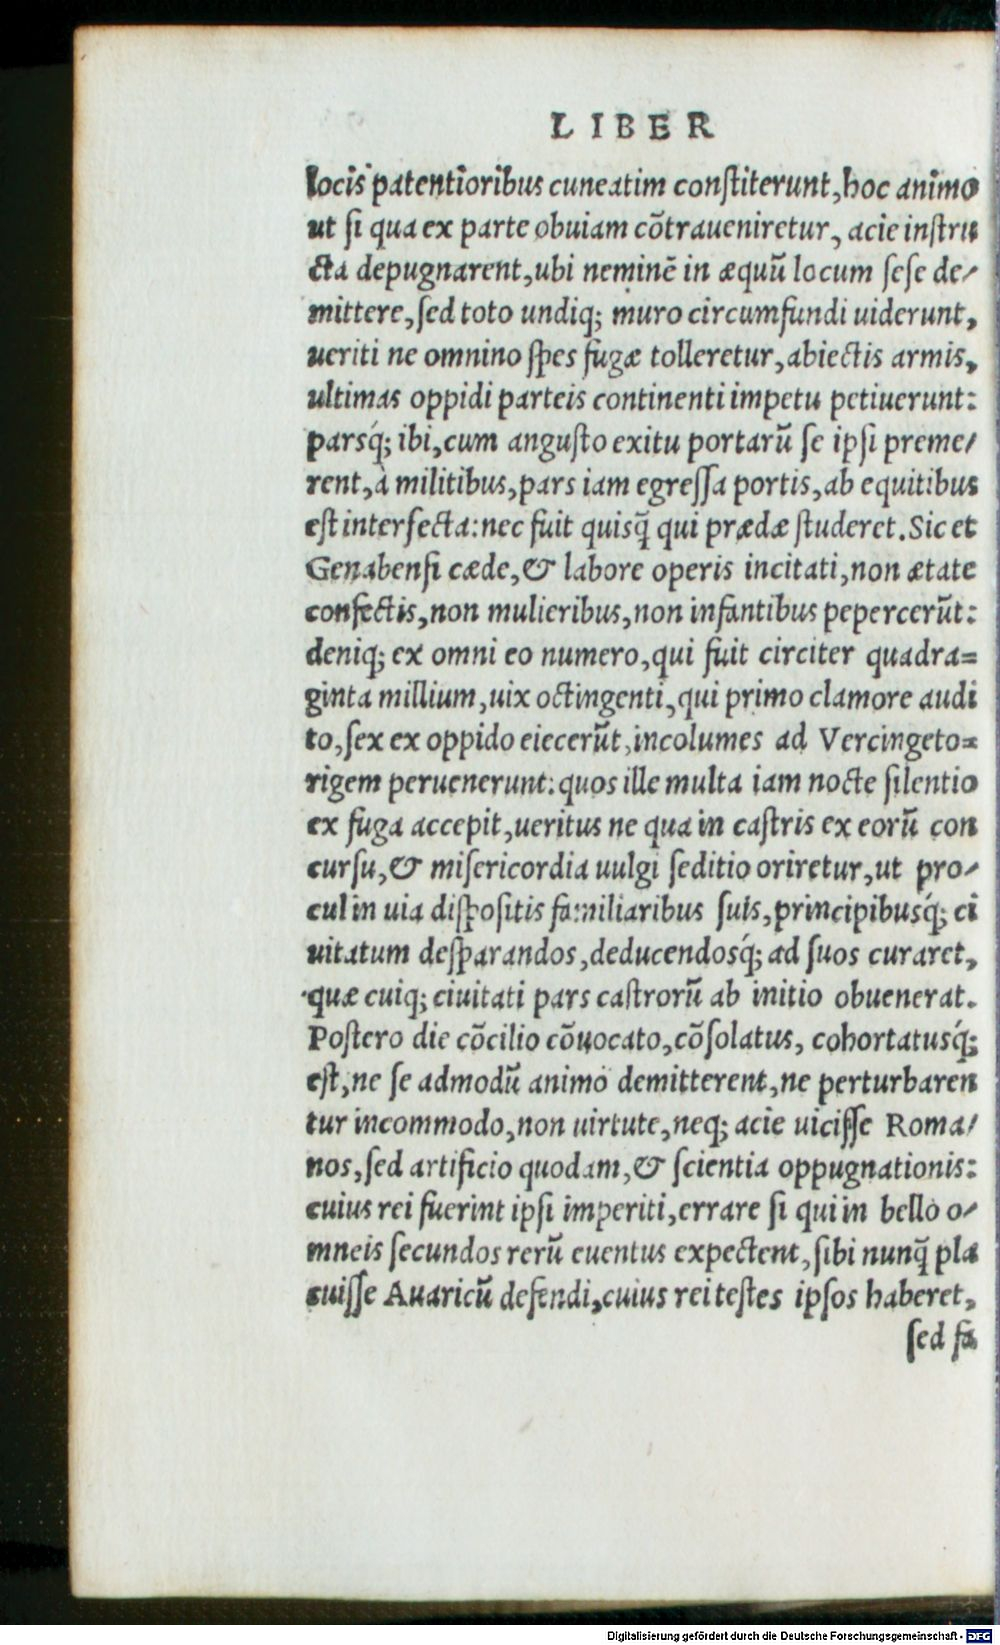 LIBER
locis patentioribus cuneatim constiterunt, hoc animo
ut si qua ex parte obuiam cõtraueniretur, acie instru
cta depugnarent, ubi neminẽ in æquũ locum sese de-
mittere, sed toto undiq; muro circumfundi uiderunt,
ueriti ne omnino spes fugæ tolleretur, abiectis armis,
ultimas oppidi parteis continenti impetu petiuerunt:
parsq́; ibi, cum angusto exitu portarũ se ipsi preme-
rent, à militibus, pars iam egressa portis, ab equitibus
est interfecta: nec fuit quisq̃ qui prædæ studeret. Sic et
Genabensi cæde, & labore operis incitati, non ætate
confectis, non mulieribus, non infantibus pepercerũt:
deniq; ex omni eo numero, qui fuit circiter quadra=
ginta millium, uix octingenti, qui primo clamore audi
to, sex ex oppido eiecerũt, incolumes ad Vercingeto=
rigem peruenerunt: quos ille multa iam nocte silentio
ex fuga accepit, ueritus ne qua in castris ex eorũ con
cursu, & misericordia uulgi seditio oriretur, ut pro-
cul in uia dispositis familiaribus suis, principibusq́; ci
uitatum desparandos, deducendosq́; ad suos curaret,
quæ cuiq; ciuitati pars castrorũ ab initio obuenerat.
Postero die cõcilio cõuocato, cõsolatus, cohortatusq́;
est, ne se admodũ animo demitterent, ne perturbaren
tur incommodo, non uirtute, neq; acie uicisse Roma-
nos, sed artificio quodam, & scientia oppugnationis:
cuius rei fuerint ipsi imperiti, errare si qui in bello o-
mneis secundos rerũ euentus expectent, sibi nunq̃ pla
cuisse Auaricũ defendi, cuius rei testes ipsos haberet,
sed fa
Digitalisierung gefördert durch die Deutsche Forschungsgemeinschaft - DFG